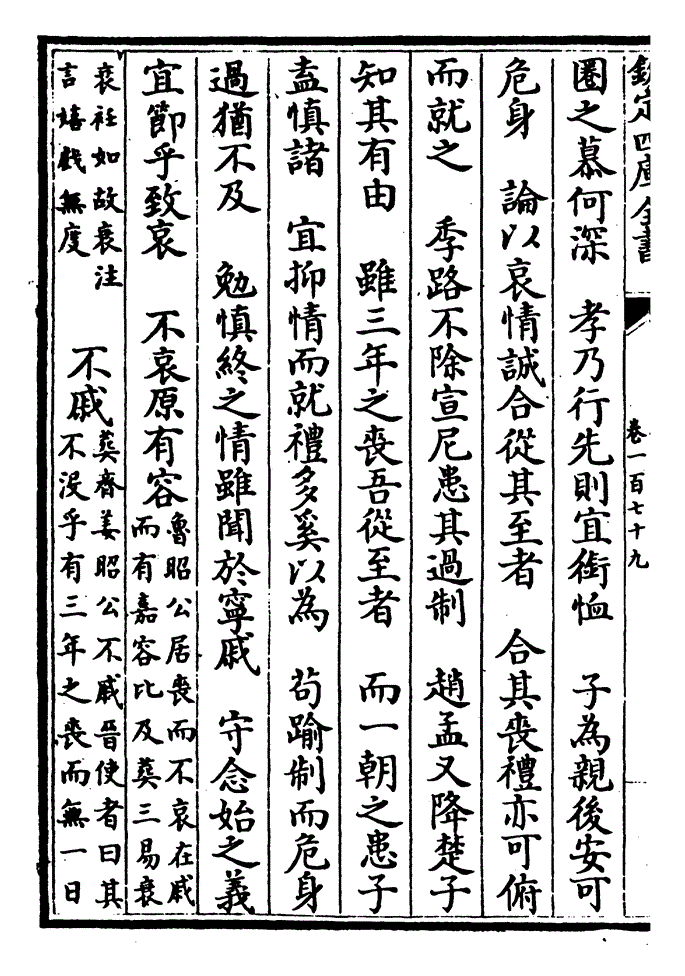 欽定四庫全書
卷一百七十九
圏之慕何深　孝乃行先則宜銜恤　子為親後安可
危身　論以哀情誠合從其至者　合其喪禮亦可俯
而就之　季路不除宣尼患其過制　趙孟又降楚子
知其有由　雖三年之喪吾從至者　而一朝之患子
盍慎諸　宜抑情而就禮多奚以為　茍踰制而危身
過猶不及　勉慎終之情雖聞於寧戚　守念始之義
宜節乎致哀　不哀原有容
魯昭公居喪而不哀在戚
而有嘉容比及葬三易衰
衰衽如故衰注
言嬉戲無度
不戚
葬齊姜昭公不戚晉使者曰其
不没乎有三年之喪而無一日